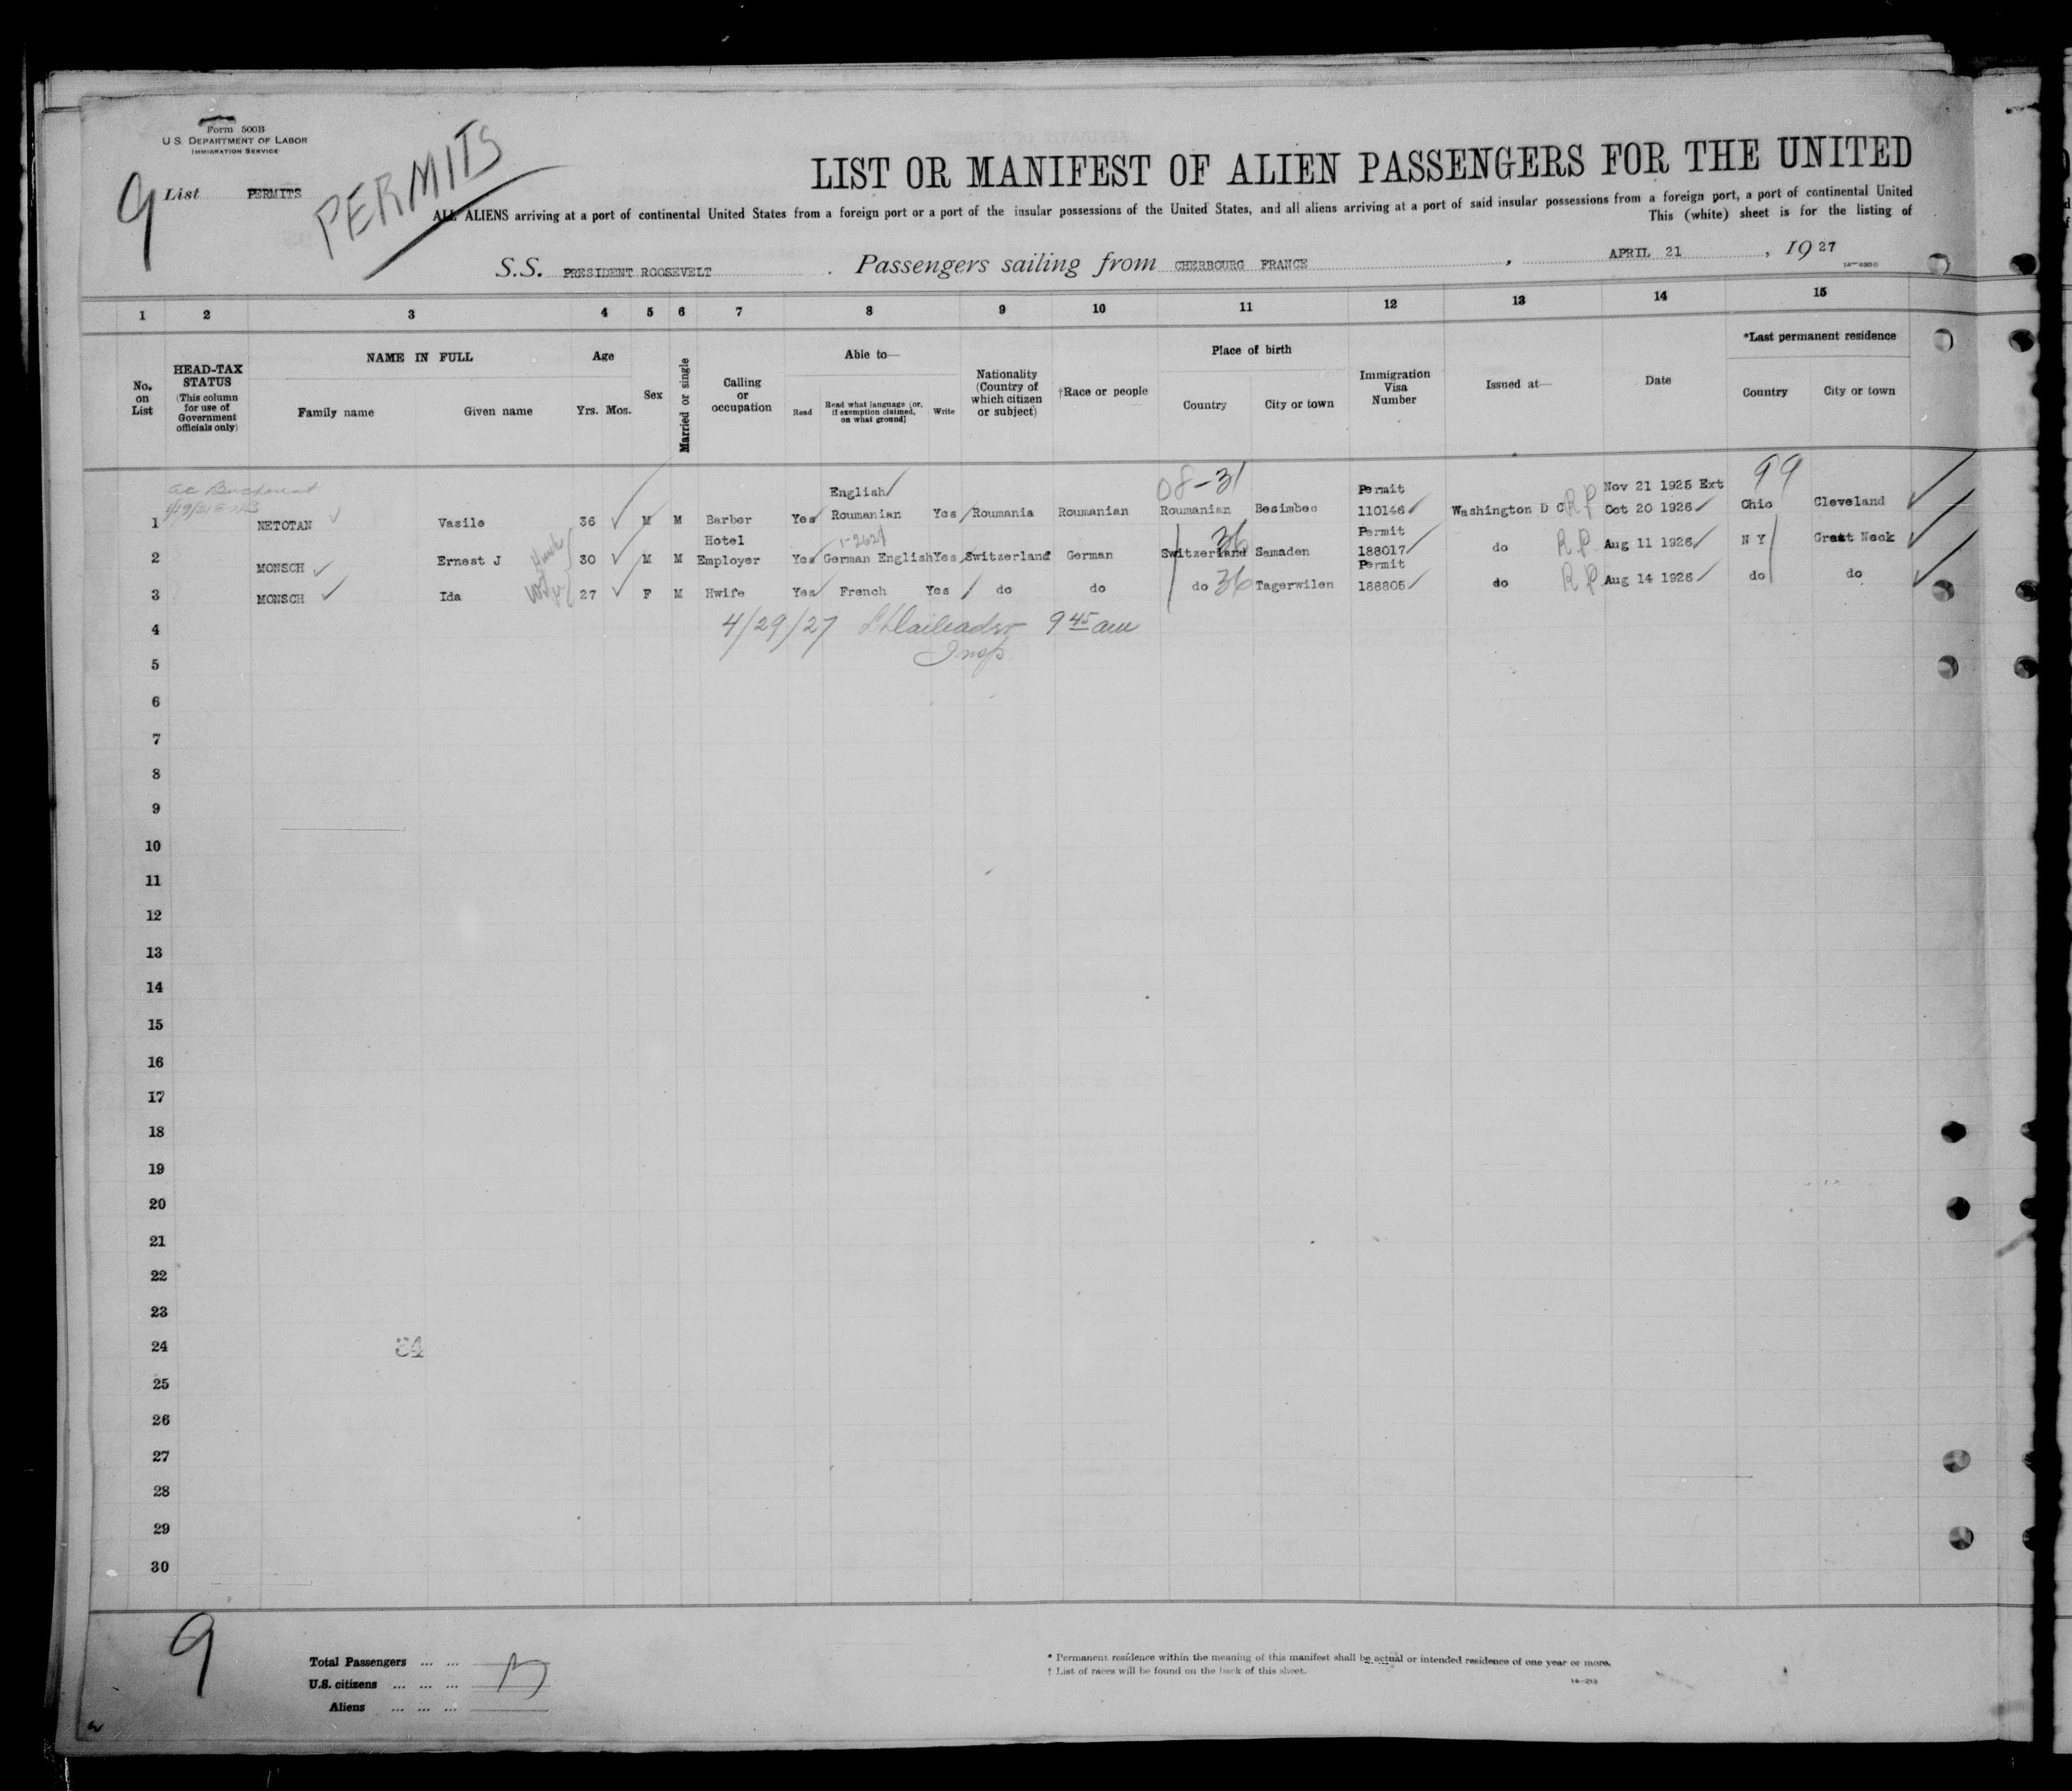 Form 500B
U.S. DEPARTMENT OF LABOR
IMMIGRATION SERVICE
9 List PERMITS
PERMITS
LIST OR MANIFEST OF ALIEN PASSENGERS FOR THE UNITED
ALL ALIENS arriving at a port of continental United States from a foreign port or a port of the insular possessions of the United States, and all aliens arriving at a port of said insular possessions from a foreign port, a port of continental United
This (white) sheet is for the listing of
S.S. PRESIDENT ROOSEVELT . Passengers sailing from CHERBOURG FRANCE , APRIL 21 , 19 27
14—480B
1 2 3 4 5 6 7 8 9 10 11 12 13 14 15
No. on List
HEAD-TAX STATUS (This column for use of Government officials only)
NAME IN FULL
Family name Given name
Age
Yrs. Mos.
Sex
Married or single
Calling or occupation
Able to—
Read Read what language [or, if exemption claimed, on what ground] Write
Nationality (Country of which citizen or subject)
†Race or people
Place of birth
Country City or town
Immigration Visa Number
Issued at—
Date
*Last permanent residence
Country City or town
English 08-31 Permit Nov 21 1925 Ext 99
1 NETOTAN Vasile 36 M M Barber Yes Roumanian Yes Roumania Roumanian Roumanian Besimbec 110146 Washington D C R P Oct 20 1926 Ohio Cleveland
Hotel 36 Permit
2 MONSCH Ernest J 30 M M Employer Yes German English Yes Switzerland German Switzerland Samaden 188017 do R.P. Aug 11 1926 N Y Great Neck
Permit
3 MONSCH Ida Wife 27 F M Hwife Yes French Yes do do do 36 Tagerwilen 188805 do R.P. Aug 14 1926 do do
4/29/27 9 45 am
Insp.
4
5
6
7
8
9
10
11
12
13
14
15
16
17
18
19
20
21
22
23
24
34
25
26
27
28
29
30
9
Total Passengers ... ...
U.S. citizens ... ... ...
Aliens ... ... ...
* Permanent residence within the meaning of this manifest shall be actual or intended residence of one year or more.
† List of races will be found on the back of this sheet.
14—213